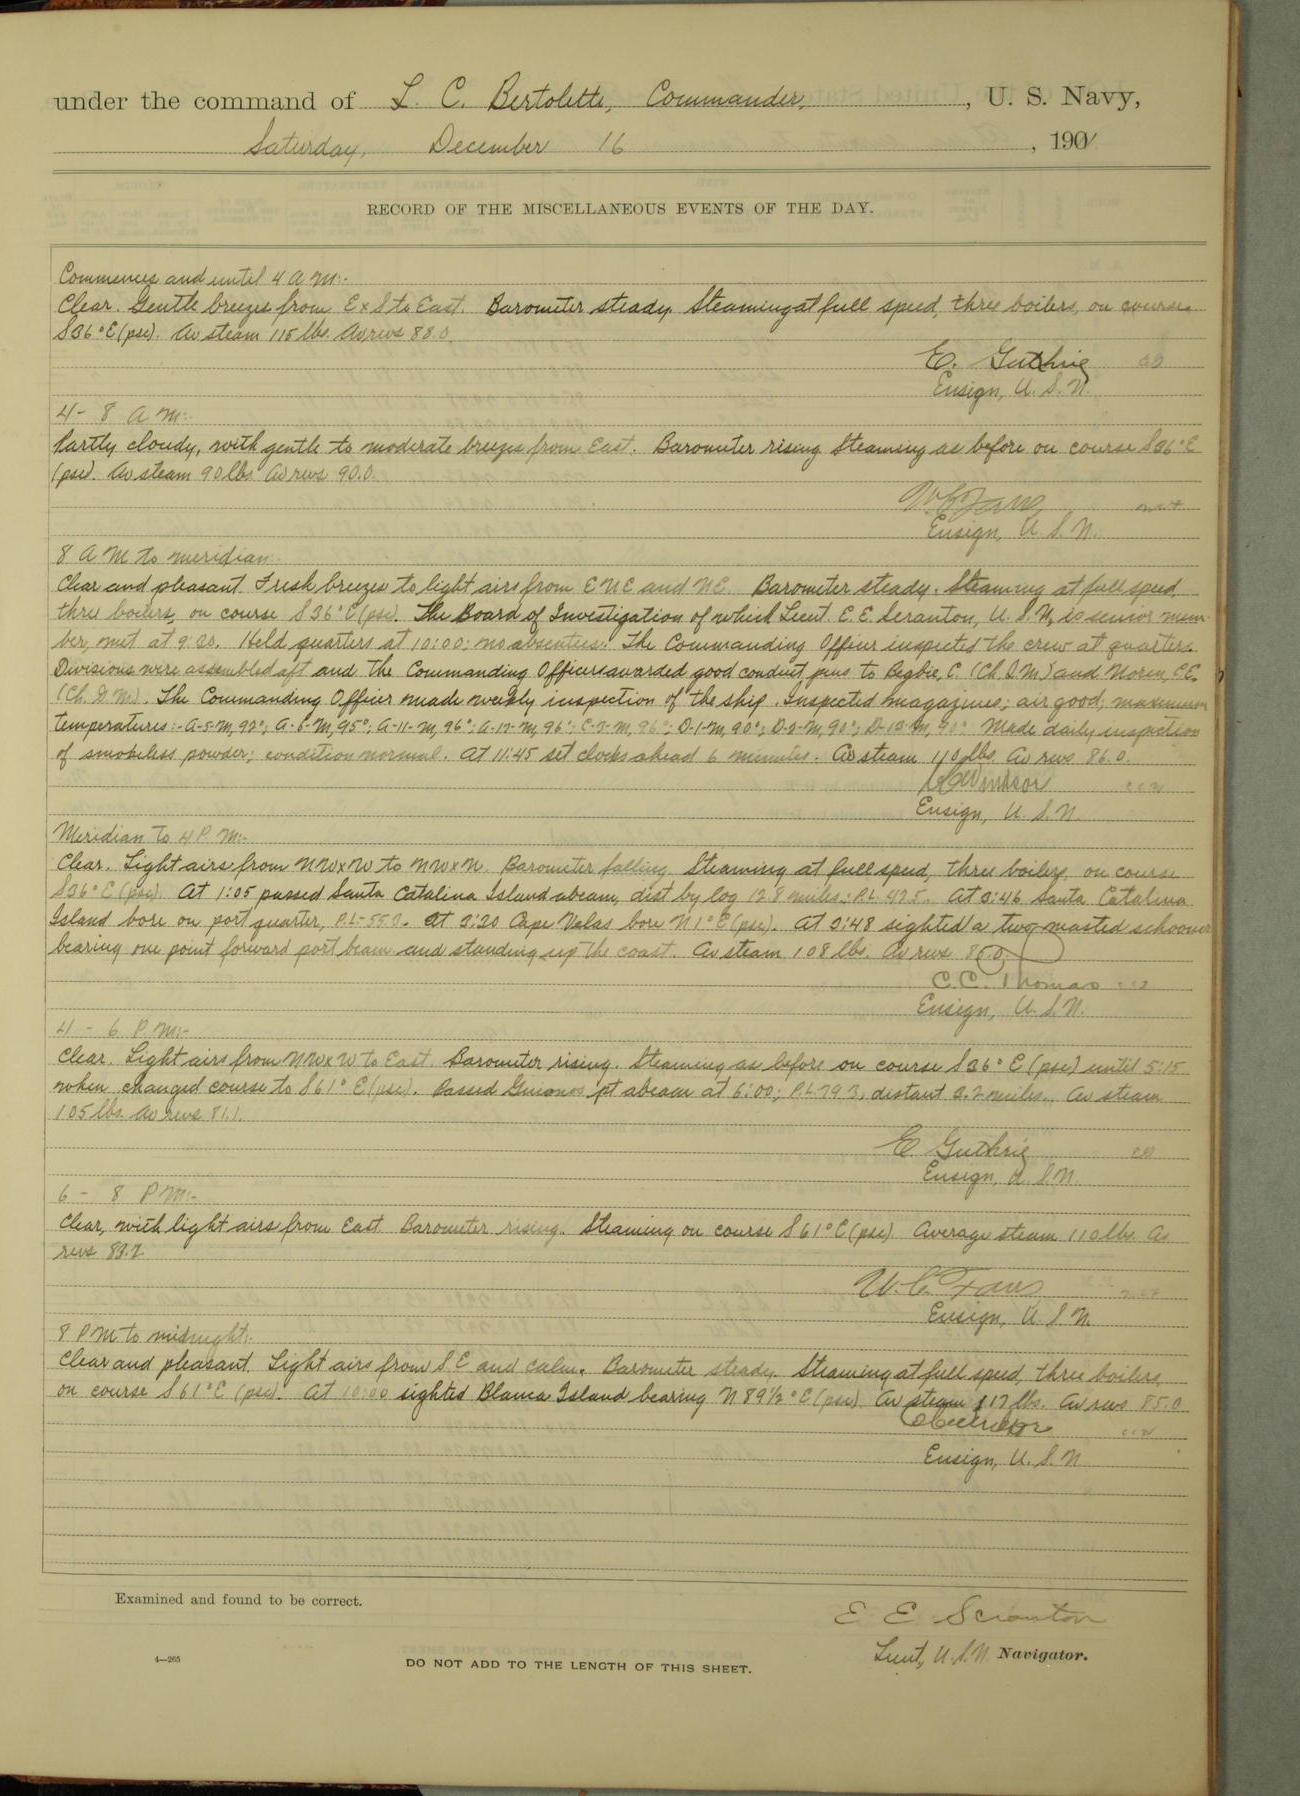 under the command of L. C. Bertolette, Commander, , U. S. Navy,
Saturday, December 16 , 190
RECORD OF THE MISCELLANEOUS EVENTS OF THE DAY.
Commences and until 4 A M:-
Clear. Gentle breezes from E x S to East. Barometer steady. Steaming at full speed, three boilers, on course
S 36° E (psc). Av steam 115 lbs. Av revs 88.0.
E. Guthrie
Ensign, U. S. N.
4 - 8 A M:-
Partly cloudy, with gentle to moderate breezes from East. Barometer rising. Steaming as before on course S 36° E
(psc). Av steam 90 lbs. Av revs 90.0.
Ensign, U. S. N.
8 A M to meridian:
Clear and pleasant. Fresh breezes to light airs from ENE and NE. Barometer steady. Steaming at full speed,
three boilers, on course S 36° E (psc). The Board of Investigation of which Lieut. E. E. Scranton, U. S. N, is senior mem-
ber, met at 9:20. Held quarters at 10:00; no absentees. The Commanding Officer inspected the crew at quarters.
Divisions were assembled aft and the Commanding Officer awarded good conduct pins to Begbie, C. (Ch. G. M.) and Noren, C. E.
(Ch. G. M.). The Commanding Officer made weekly inspection of the ship. Inspected magazines; air good; maximum
temperatures:- A-5-M, 92°; A-6-M, 95°; A-11-M, 96°; A-12-M, 96°; C-2-M, 96°; D-1-M, 90°; D-2-M, 90°; D-10-M, 91° Made daily inspection
of smokeless powder; condition normal. At 11:45 set clocks ahead 6 minutes. Av steam 110 lbs. Av revs 86.0.
Windsor
Ensign, U. S. N.
Meridian to 4 P. M:-
Clear. Light airs from NWxW to NWxN. Barometer falling. Steaming at full speed, three boilers, on course
S 36° E (psc). At 1:05 passed Santa Catalina Island abeam, dist by log 12.8 miles; P.L. 42.5. At 2:46 Santa Catalina
Island bore on port quarter, P.L-55.2. At 3:20 Cape Velas bore N 1° E (psc). At 3:48 sighted a two masted schooner
bearing one point forward port beam and standing up the coast. Av steam 108 lbs. Av revs
C. C. Thomas
Ensign, U. S. N.
4 - 6 P. M:-
Clear. Light airs from NWxW to East. Barometer rising. Steaming as before on course S 36° E (psc) until 5:15
when changed course to S 61° E (psc). Passed Guionos pt abeam at 6:00; P.L. 79.3, distant 3.2 miles. Av steam
105 lbs. Av revs 81.1.
E. Guthrie
Ensign, U. S. N.
6 - 8 P M:-
Clear, with light airs from East. Barometer rising. Steaming on course S 61° E (psc). Average steam 110 lbs. Av
revs 83.2
Ensign, U. S. N.
8 P M to midnight:-
Clear and pleasant. Light airs from S. E and calm. Barometer steady. Steaming at full speed, three boilers,
on course S 61° E (psc). At 10:00 sighted Blanca Island bearing N 89½° E (psc). Av steam 112 lbs. Av revs 85.0
Ensign, U. S. N.
Examined and found to be correct.
E E Scranton
Lieut, U. S. N. Navigator.
4—265
DO NOT ADD TO THE LENGTH OF THIS SHEET.